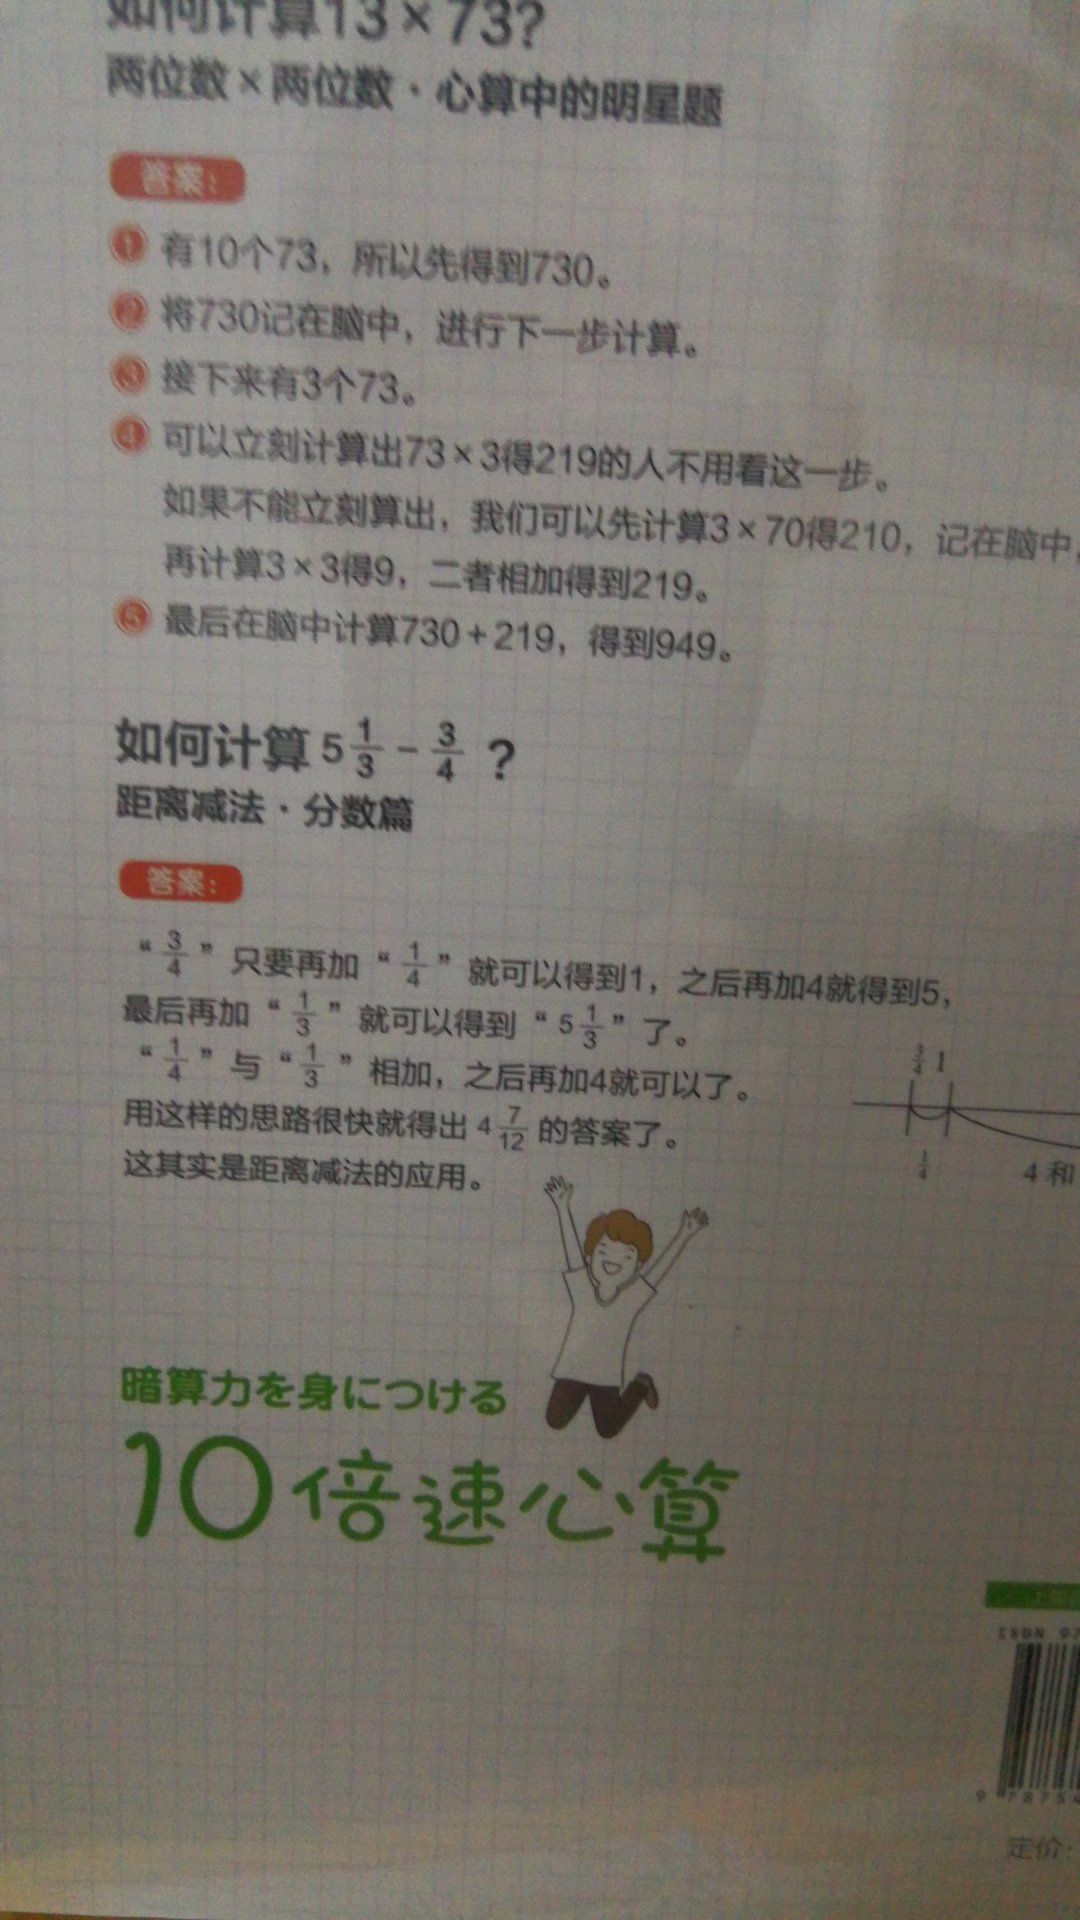 如何计算13×73?
两位数×两位数·心算中的明星题
答案:
1 有10个73，所以先得到730。
2 将730记在脑中，进行下一步计算。
3 接下来有3个73。
4 可以立刻计算出73×3得219的人不用看这一步。
如果不能立刻算出，我们可以先计算3×70得210，记在脑中，
再计算3×3得9，二者相加得到219。
5 最后在脑中计算730+219，得到949。
如何计算 5 1/3 - 3/4 ?
距离减法·分数篇
答案:
“3/4”只要再加“1/4”就可以得到1，之后再加4就得到5，
最后再加“1/3”就可以得到“5 1/3”了。
“1/4”与“1/3”相加，之后再加4就可以了。
用这样的思路很快就得出 4 7/12 的答案了。
这其实是距离减法的应用。
3/4 1
1/4 4 和
暗算力を身につける
10倍速心算
ISBN 97
9 78754
定价: